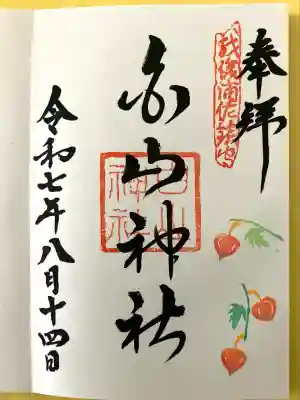 奉拝
越後浦佐鎮守
白山神社
白山神社
令和七年八月十四日